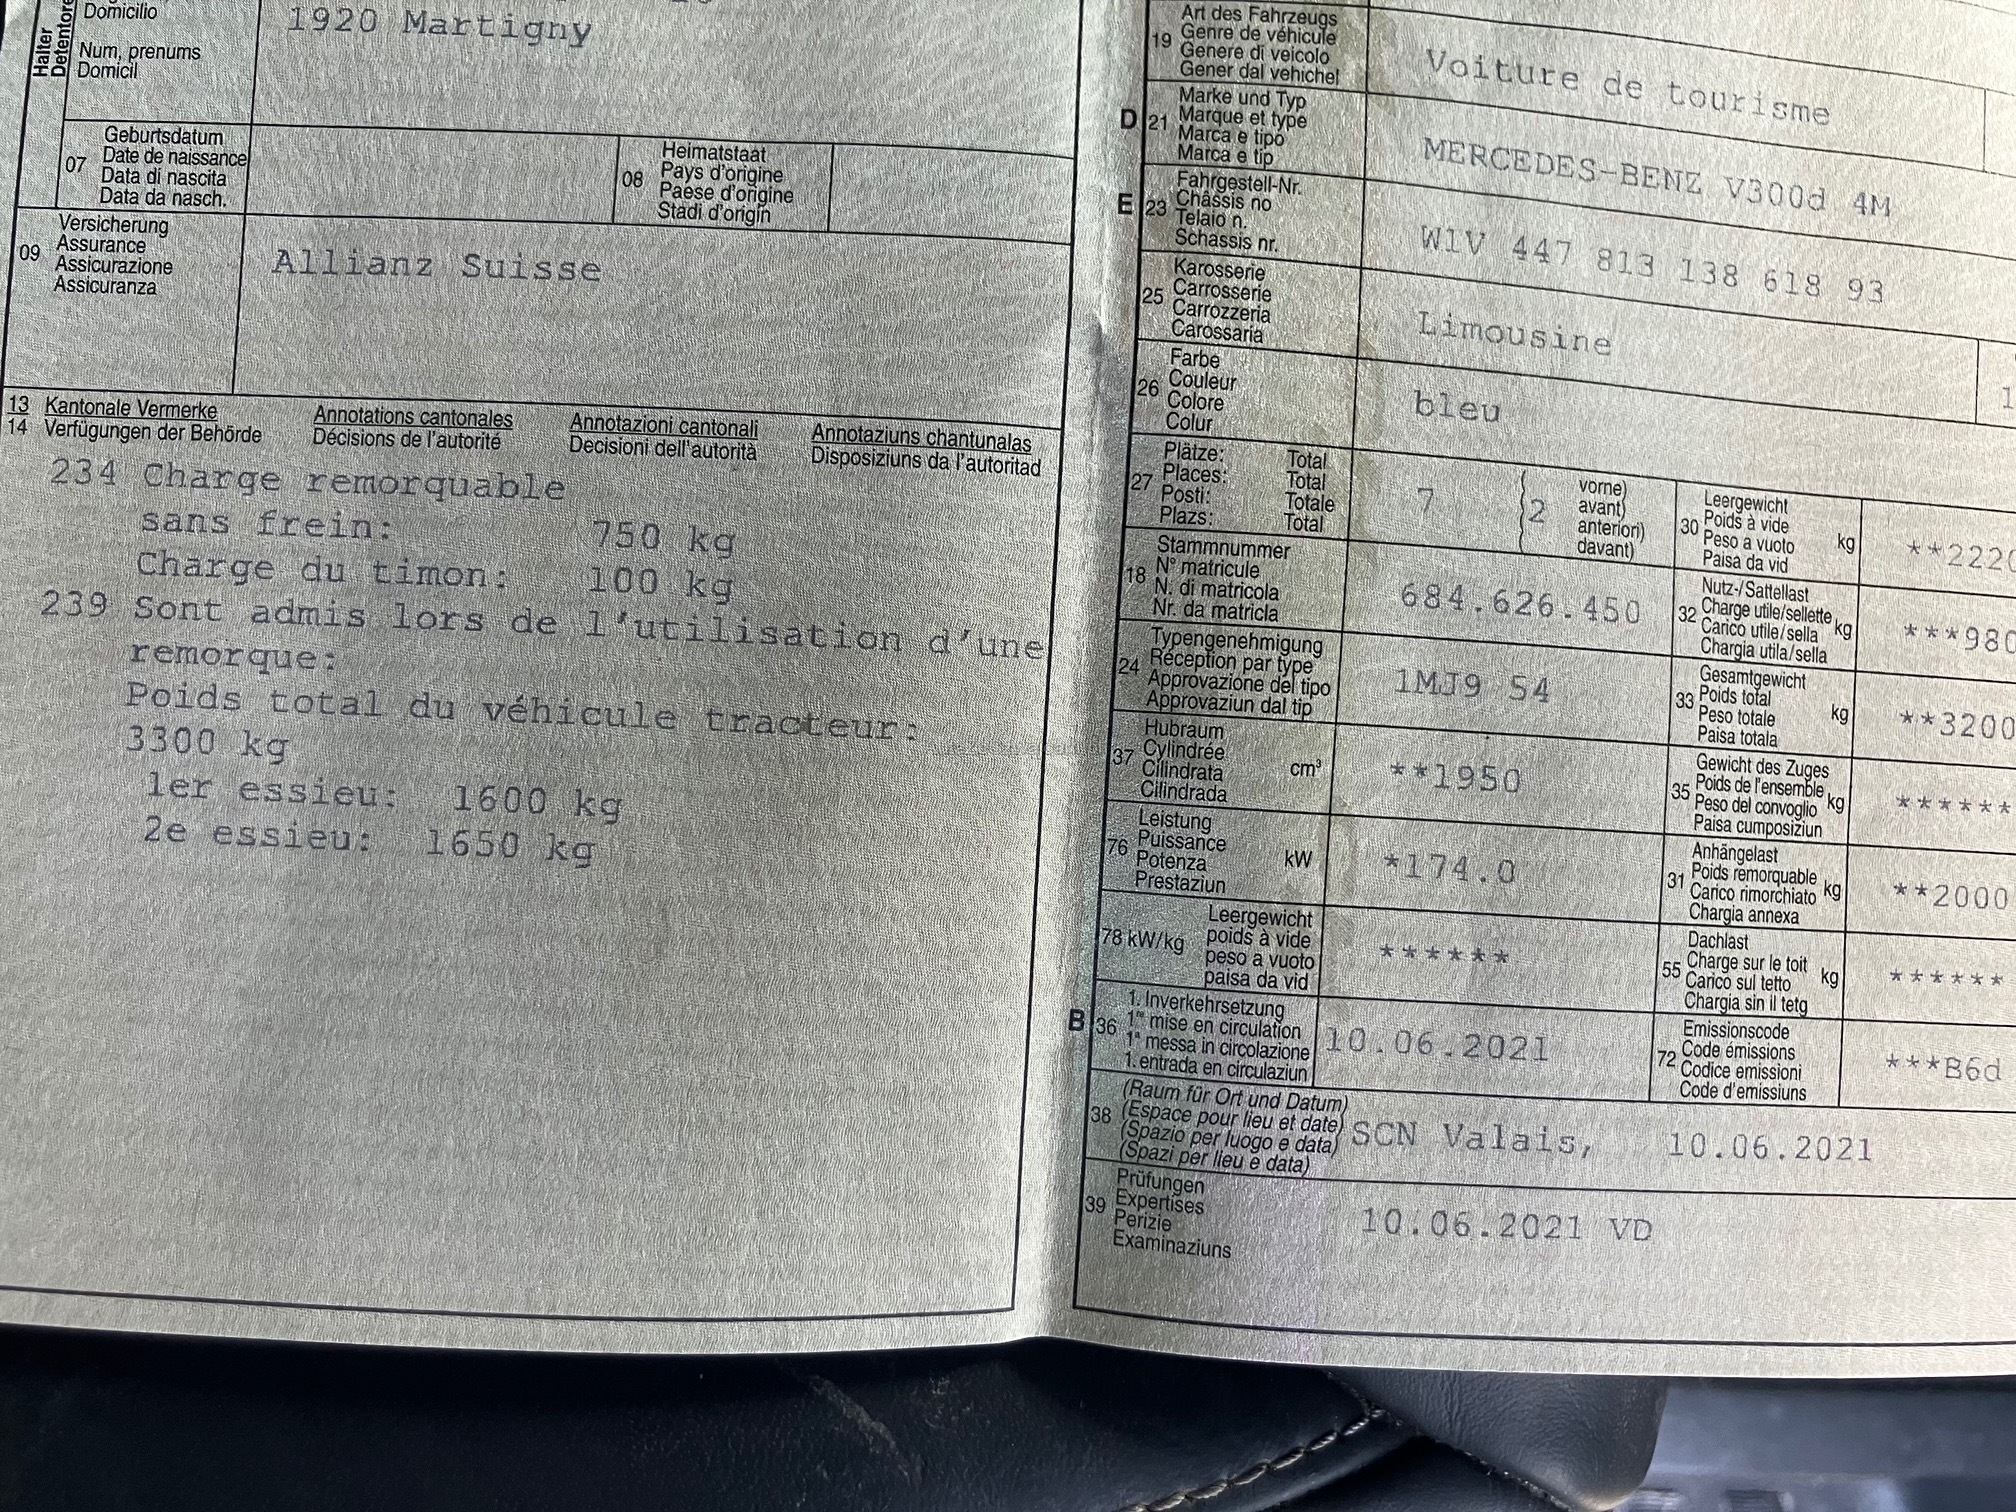 Halter
Detentore
Domicilio
Num, prenums
Domicil
1920 Martigny
07
Geburtsdatum
Date de naissance
Data di nascita
Data da nasch.
08
Heimatstaat
Pays d'origine
Paese d'origine
Stadi d'origin
09
Versicherung
Assurance
Assicurazione
Assicuranza
Allianz Suisse
13 Kantonale Vermerke Annotations cantonales Annotazioni cantonali Annotaziuns chantunalas
14 Verfügungen der Behörde Décisions de l'autorité Decisioni dell'autorità Disposiziuns da l'autoritad
234 Charge remorquable
sans frein: 750 kg
Charge du timon: 100 kg
239 Sont admis lors de l'utilisation d'une
remorque:
Poids total du véhicule tracteur:
3300 kg
1er essieu: 1600 kg
2e essieu: 1650 kg
19
Art des Fahrzeugs
Genre de véhicule
Genere di veicolo
Gener dal vehichel
Voiture de tourisme
D 21
Marke und Typ
Marque et type
Marca e tipo
Marca e tip
MERCEDES-BENZ V300d 4M
E 23
Fahrgestell-Nr.
Châssis no
Telaio n.
Schassis nr.
W1V 447 813 138 618 93
25
Karosserie
Carrosserie
Carrozzeria
Carossaria
Limousine
26
Farbe
Couleur
Colore
Colur
bleu
27
Plätze: Total
Places: Total
Posti: Totale
Plazs: Total
7
2
vorne)
avant)
anteriori)
davant)
30
Leergewicht
Poids à vide
Peso a vuoto
Paisa da vid
kg
**2220
18
Stammnummer
N° matricule
N. di matricola
Nr. da matricla
684.626.450
32
Nutz-/Sattellast
Charge utile/sellette
Carico utile/sella
Chargia utila/sella
kg
***980
24
Typengenehmigung
Réception par type
Approvazione del tipo
Approvaziun dal tip
1MJ9 54
33
Gesamtgewicht
Poids total
Peso totale
Paisa totala
kg
**3200
37
Hubraum
Cylindrée
Cilindrata
Cilindrada
cm³
**1950
35
Gewicht des Zuges
Poids de l'ensemble
Peso del convoglio
Paisa cumposiziun
kg
******
76
Leistung
Puissance
Potenza
Prestaziun
kW
*174.0
31
Anhängelast
Poids remorquable
Carico rimorchiato
Chargia annexa
kg
**2000
78 kW/kg
Leergewicht
poids à vide
peso a vuoto
paisa da vid
******
55
Dachlast
Charge sur le toit
Carico sul tetto
Chargia sin il tetg
kg
******
B 36
1. Inverkehrsetzung
1re mise en circulation
1a messa in circolazione
1. entrada en circulaziun
10.06.2021
72
Emissionscode
Code émissions
Codice emissioni
Code d'emissiuns
***B6d
38
(Raum für Ort und Datum)
(Espace pour lieu et date)
(Spazio per luogo e data)
(Spazi per lieu e data)
SCN Valais, 10.06.2021
39
Prüfungen
Expertises
Perizie
Examinaziuns
10.06.2021 VD